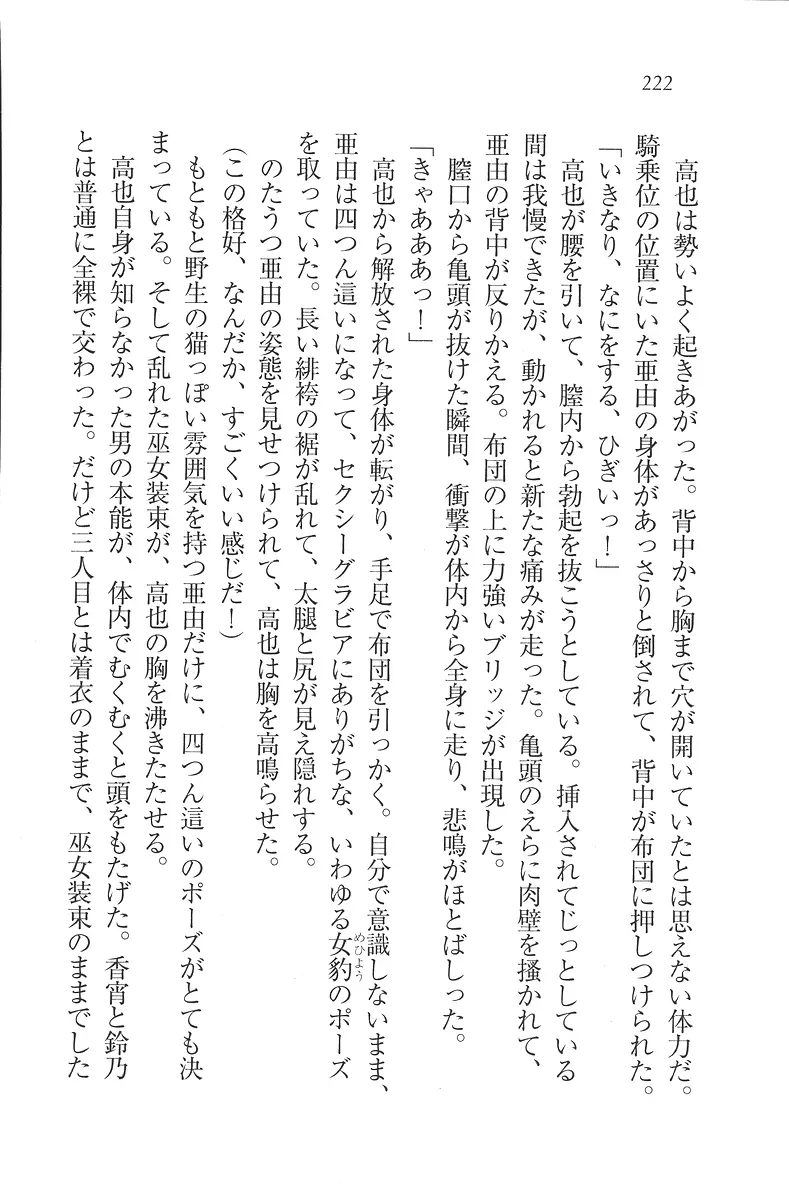 222
高也は勢いよく起きあがった。背中から胸まで穴が開いていたとは思えない体力だ。
騎乗位の位置にいた亜由の身体があっさりと倒されて、背中が布団に押しつけられた。
「いきなり、なにをする、ひぎいっ！」
高也が腰を引いて、膣内から勃起を抜こうとしている。挿入されてじっとしている
間は我慢できたが、動かれると新たな痛みが走った。亀頭のえらに肉壁を掻かれて、
亜由の背中が反りかえる。布団の上に力強いブリッジが出現した。
膣口から亀頭が抜けた瞬間、衝撃が体内から全身に走り、悲鳴がほとばしった。
「きゃあああっ！」
高也から解放された身体が転がり、手足で布団を引っかく。自分で意識しないまま、
亜由は四つん這いになって、セクシーグラビアにありがちな、いわゆる女豹のポーズ
めひよう
を取っていた。長い緋袴の裾が乱れて、太腿と尻が見え隠れする。
のたうつ亜由の姿態を見せつけられて、高也は胸を高鳴らせた。
（この格好、なんだか、すごくいい感じだ！）
もともと野生の猫っぽい雰囲気を持つ亜由だけに、四つん這いのポーズがとても決
まっている。そして乱れた巫女装束が、高也の胸を沸きたたせる。
高也自身が知らなかった男の本能が、体内でむくむくと頭をもたげた。香宵と鈴乃
とは普通に全裸で交わった。だけど三人目とは着衣のままで、巫女装束のままでした